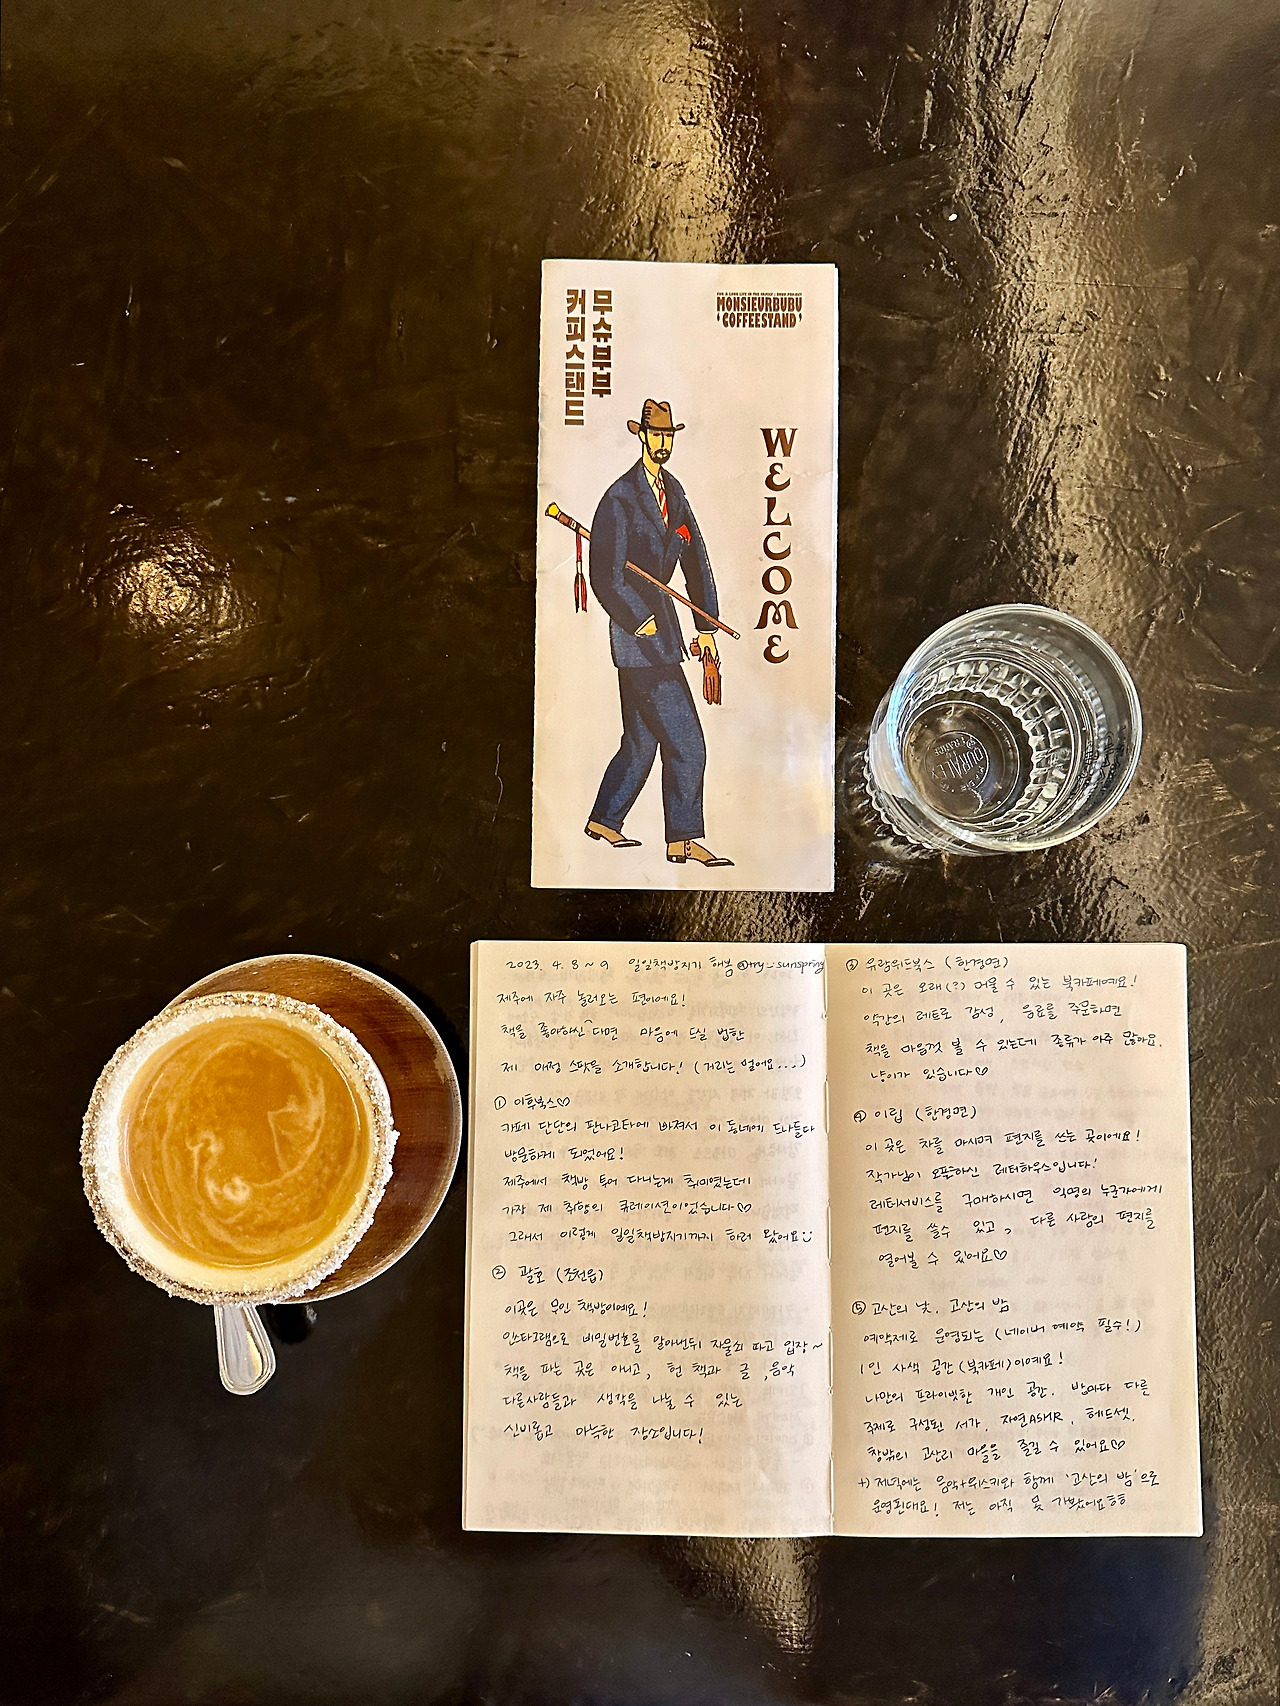 무슈부부
커피스탠드
FOR A LONG LIFE IN THE FAMILY : BUBU PROJECT
MONSIEURBUBU
'COFFEESTAND'
WELCOME
DURALEX
FRANCE
2023. 4. 8 ~ 9 일일책방지기 해봄 @my_sunspring
제주에 자주 놀러오는 편이에요!
책을 좋아하신다면 마음에 드실 법한
제 애정 스팟을 소개합니다! (거리는 멀어요...)
① 이후북스♡
카페 단단의 판나코타에 빠져서 이 동네에 드나들다
방문하게 되었어요!
제주에서 책방 투어 다니는게 취미였는데
가장 제 취향의 큐레이션이었습니다♡
그래서 이렇게 일일책방지기까지 하러 왔어요
② 괄호 (조천읍)
이곳은 무인 책방이에요!
인스타그램으로 비밀번호를 알아낸뒤 자물쇠 따고 입장~
책을 파는 곳은 아니고, 헌 책과 글, 음악
다른사람들과 생각을 나눌 수 있는
신비롭고 아늑한 장소입니다!
③ 유람위드북스 (한경면)
이 곳은 오래(?) 머물 수 있는 북카페예요!
약간의 레트로 감성, 음료를 주문하면
책을 마음껏 볼 수 있는데 종류가 아주 많아요.
냥이가 있습니다♡
④ 이립 (한경면)
이 곳은 차를 마시며 편지를 쓰는 곳이에요!
작가님이 오픈하신 레터하우스입니다!
레터서비스를 구매하시면 익명의 누군가에게
편지를 쓸수 있고, 다른 사람의 편지를
열어볼 수 있어요♡
⑤ 고산의 낮, 고산의 밤
예약제로 운영되는 (네이버 예약 필수!)
1인 사색 공간(북카페)이예요!
나만의 프라이빗한 개인 공간. 방마다 다른
주제로 구성된 서가, 자연ASMR, 헤드셋,
창밖의 고산리 마을을 즐길 수 있어요♡
+) 저녁에는 음악+위스키와 함께 '고산의 밤'으로
운영된대요! 저는 아직 못 가봤어요ㅎㅎ